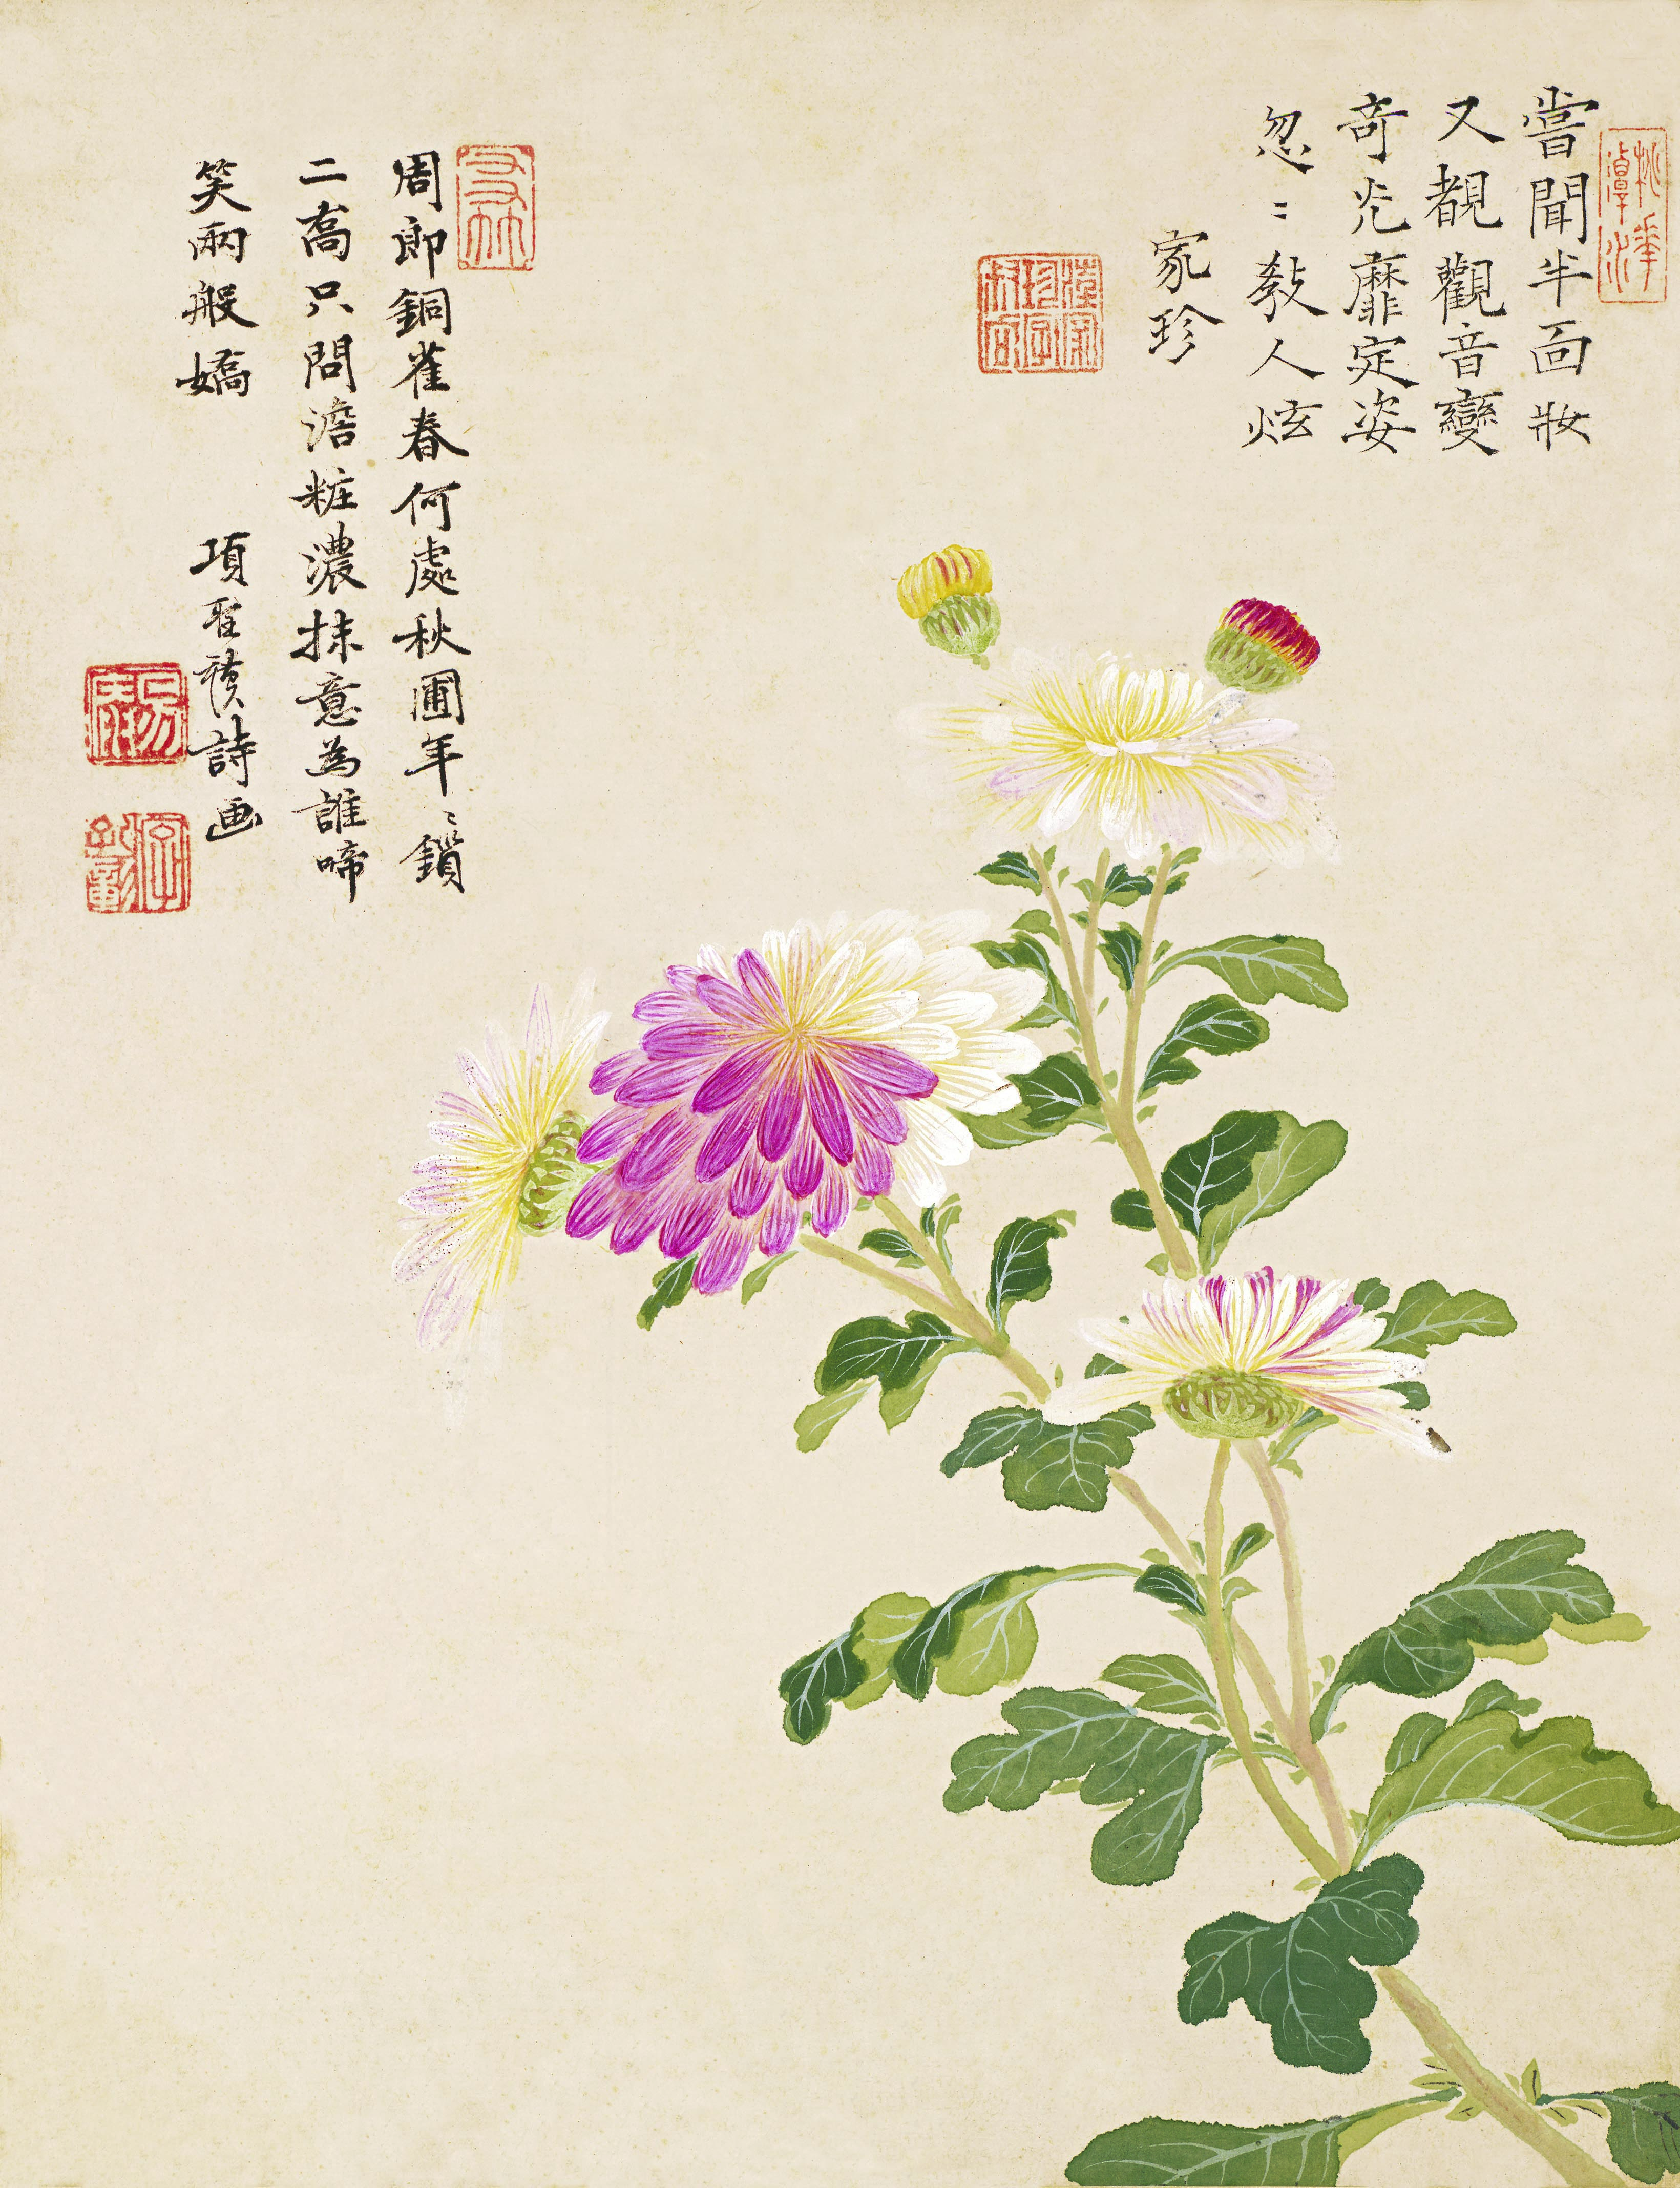 嘗聞半面妝
又覩觀音變
奇光靡定姿
忽〻教人炫
家珍
周郎銅雀春何處秋圃年〻鎖
二喬只問澹粧濃抹意為誰啼
笑兩般嬌
項聖謨詩画
桃華潭水